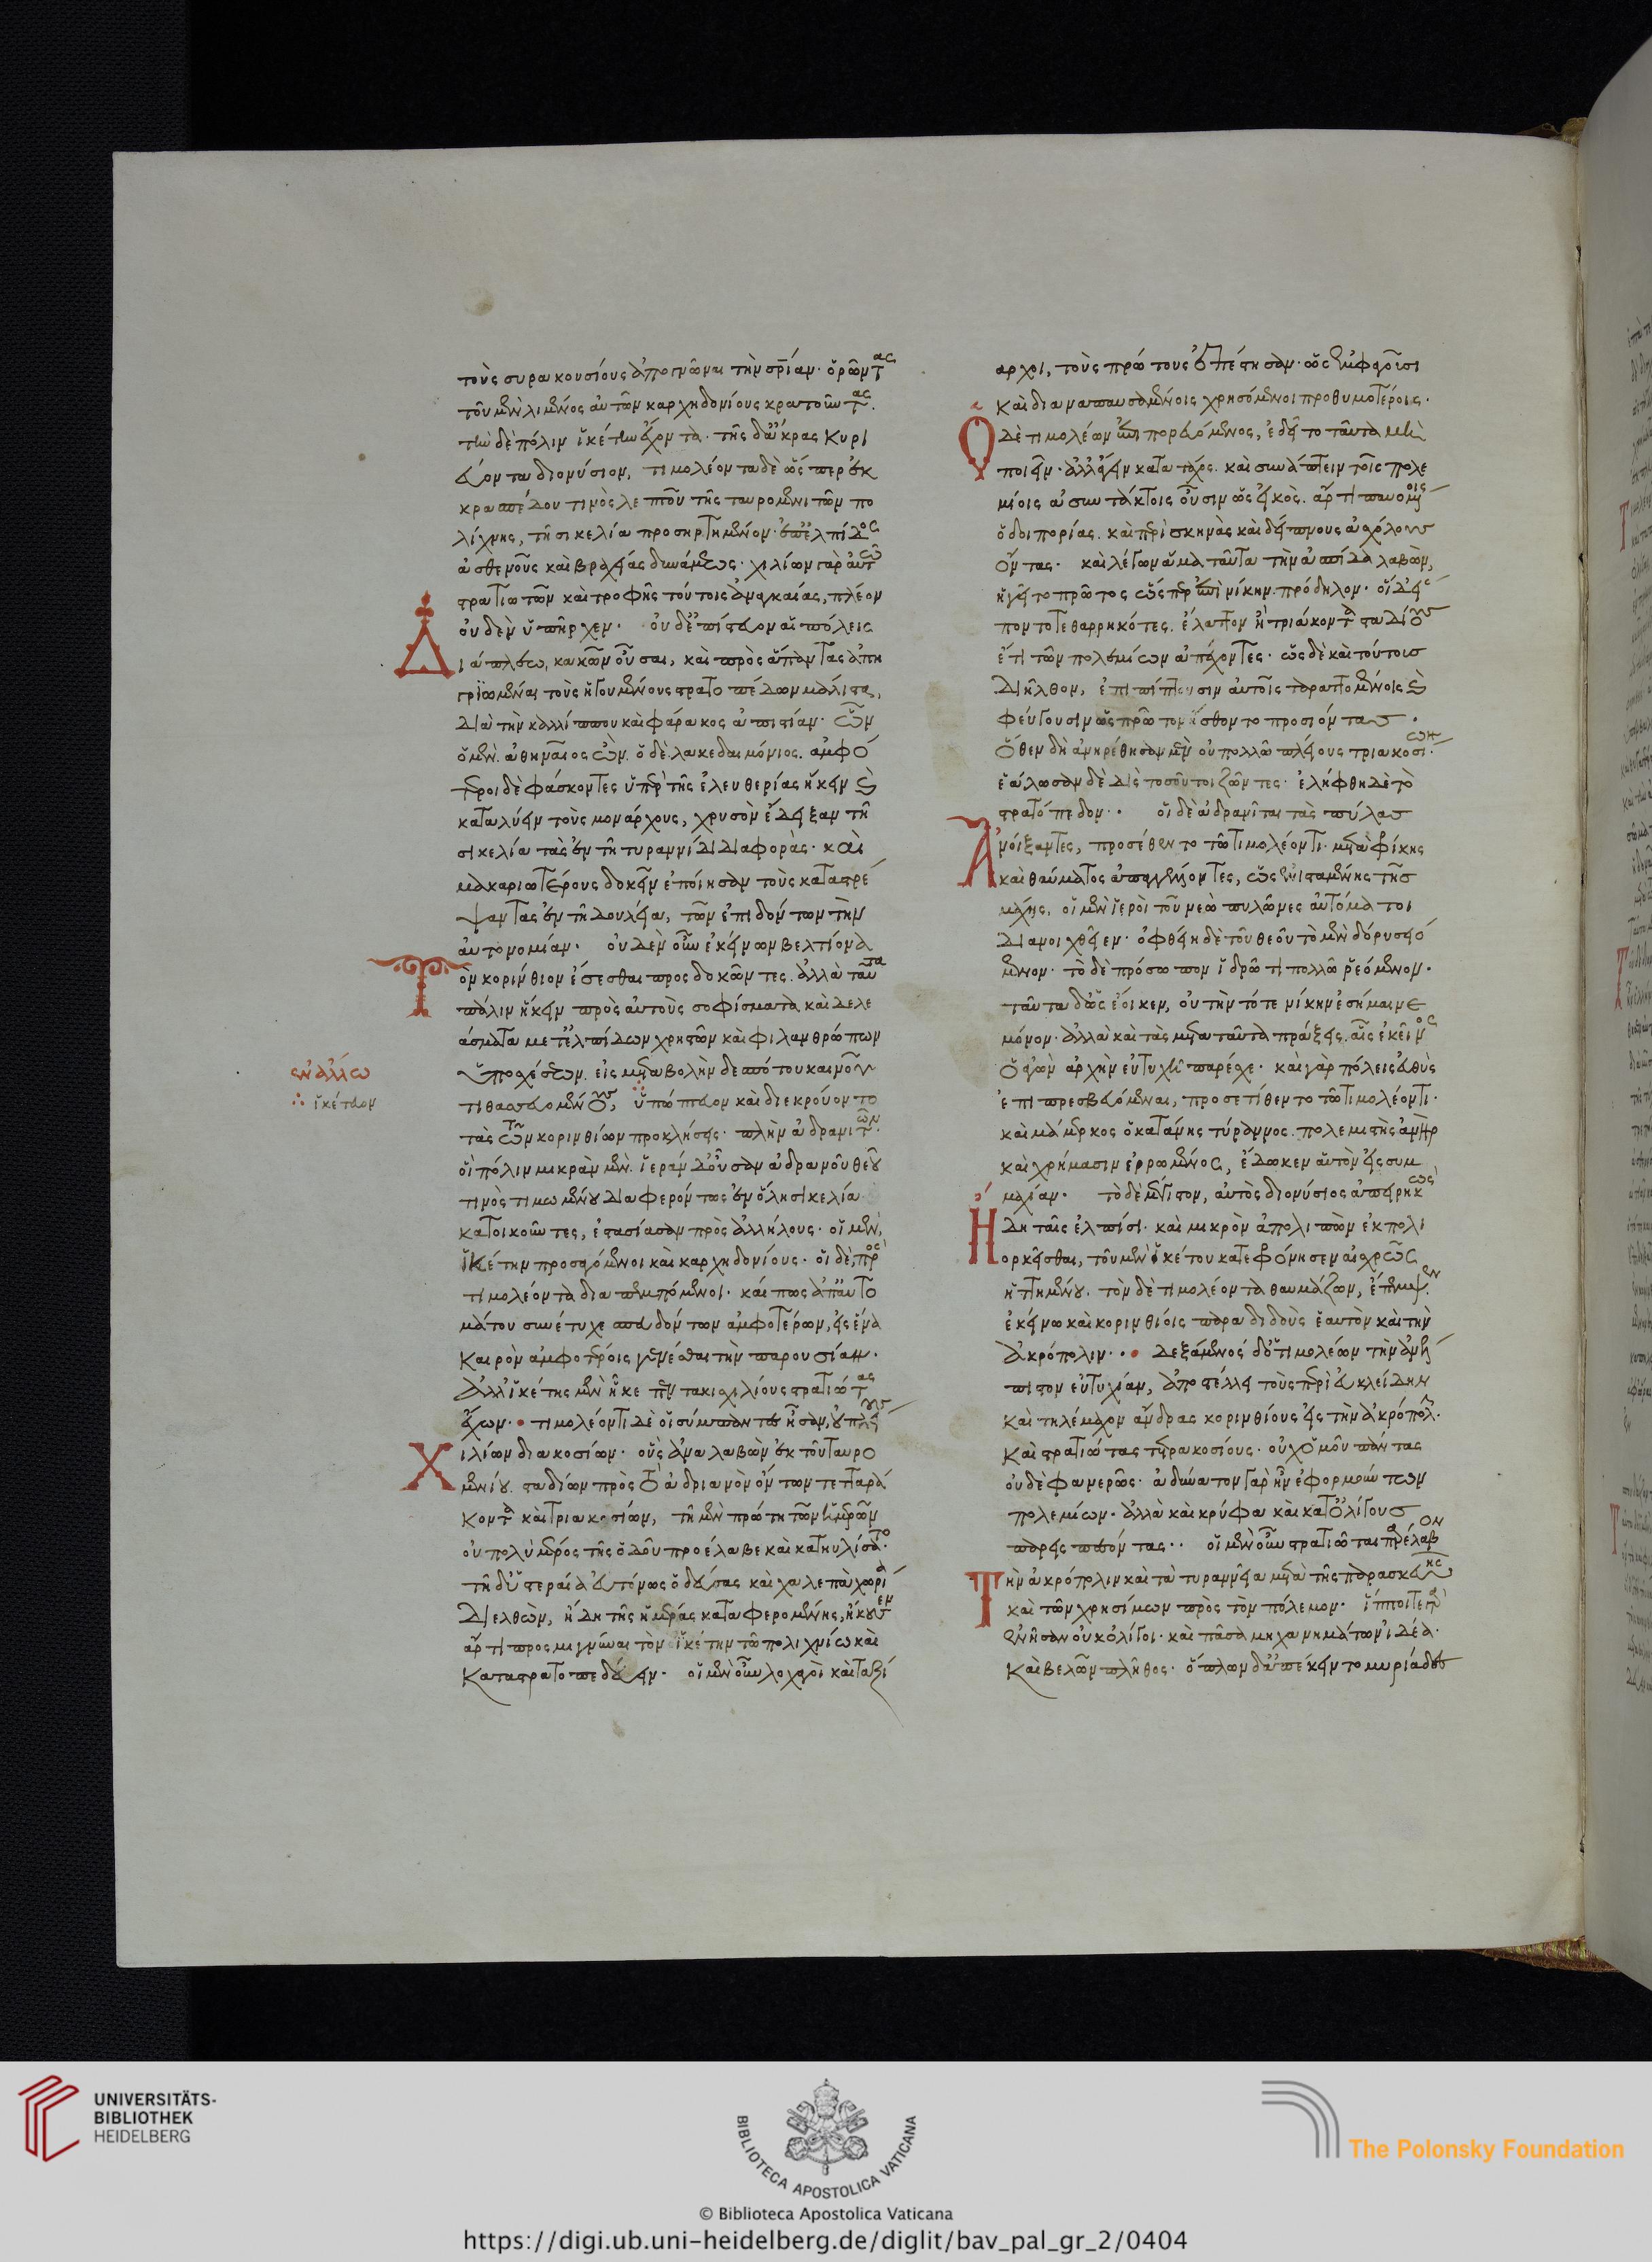 τοὺς συρακουσίους ἀπογνῶναι τὴν σρίαν· ὁρῶντας
τοῦ μὲν λιμένος αὐτῶν καρχηδονίους κρατοῦντας·
τὴν δὲ πόλιν ἱκέτην ἔχοντα· τῆς δ' ἄκρας κυρι
εύοντα διονύσιον, τιμολέοντα δὲ ὥσπερ ἐκ
κρασπέδου τινὸς λεπτοῦ τῆς ταυρομενιτῶν πο
λίχνης, τῆ σικελία προσηρτημένον· ἐπ' ἐλπίδος
ἀσθενοῦς καὶ βραχείας δυνάμεως· χιλίων γὰρ αὐτῶ
στρατιωτῶν καὶ τροφῆς τούτοις ἀναγκαίας, πλέον
οὐδὲν ὑπῆρχεν· οὐδ' ἐπίστευον αἱ πόλεις
Διάπλεω κακῶν οὖσαι, καὶ πρὸς ἅπαντας ἀπη
γριωμέναι τοὺς ἡγουμένους στρατοπέδων μάλιστα,
διὰ τὴν καλλίππου καὶ φάρακος ἀπιστίαν· ὧν
ὁ μὲν ἀθηναῖος ὢν. ὁ δὲ λακεδαιμόνιος. ἀμφό
τεροι δὲ φάσκοντες ὑπὲρ τῆς ἐλευθερίας ἥκειν καὶ
καταλύειν τοὺς μονάρχους, χρυσὸν ἔδειξαν τῆ
σικελία τὰς ἐν τῆ τυραννίδι διαφορὰς· καὶ
μακαριωτέρους δοκεῖν ἐποίησαν τοὺς καταστρέ
ψαντας ἐν τῆ δουλεία, τῶν ἐπιδόντων τὴν
αὐτονομίαν· οὐδὲν οὖν ἐκείνων βελτίονα
Τὸν κορίνθιον ἔσεσθαι προσδοκῶντες. ἀλλὰ ταῦτα
πάλιν ἥκειν πρὸς αὐτοὺς σοφίσματα καὶ δελε
άσματα μετ' ἐλπίδων χρηστῶν καὶ φιλανθρώπων
ὑποσχέσεων. εἰς μεταβολὴν δεσπότου καινοῦ
τιθασευομένους, ὑπώπτευον καὶ διεκρούοντο
τὰς τῶν κορινθίων προκλήσεις· πλὴν ἀδρανιτῶν·
οἱ πόλιν μικρὰν μὲν. ἱερὰν δ' οὖσαν ἀδρανοῦ θεοῦ
τινὸς τιμωμένου διαφερόντως ἐν ὅλη σικελία
κατοικοῦντες, ἐστασίασαν πρὸς ἀλλήλους· οἱ μὲν,
ἱκέτην προσαγόμενοι καὶ καρχηδονίους· οἱ δὲ, πρὸς
τιμολέοντα διαπεμπόμενοι· καί πως ἀπ' αὐτο
μάτου συνέτυχε σπευδόντων ἀμφοτέρων, εἰς ἕνα
καιρὸν ἀμφοτέροις γενέσθαι τὴν παρουσίαν·
Ἀλλ' ἱκέτης μὲν ἧκε πεντακισχιλίους στρατιώτας
ἔχων· τιμολέοντι δὲ οἱ σύμπαντες ἦσαν, οὐ πλείους
Χιλίων διακοσίων· οὓς ἀναλαβὼν ἐκ τοῦ ταυρο
μενίου. σταδίων πρὸς τὸ ἀδριανὸν ὄντων τετταρά
κοντα καὶ τριακοσίων, τῆ μὲν πρώτη τῶν ἡμερῶν
οὐ πολὺ μέρος τῆς ὁδοῦ προέλαβε καὶ κατηυλίσατο·
τῆ δ' ὑστεραία εὐτόνως ὁδεύσας καὶ χαλεπὰ χωρία
διελθὼν, ἤδη τῆς ἡμέρας καταφερομένης, ἤκουσεν
ἄρτι προσμιγνύναι τὸν ἱκέτην τῶ πολιχνίω καὶ
καταστρατοπεδεύειν· οἱ μὲν οὖν λοχαγοὶ καὶ ταξί
ἐν ἄλλω
ἱκέτευον
αρχοι, τοὺς πρώτους ἐπέστησαν· ὡς ἐμφαγοῦσι
καὶ διαναπαυσαμένοις χρησόμενοι προθυμοτέροις·
Ὁ δὲ τιμολέων ἐπιπορευόμενος, ἐδεῖτο ταῦτα μὴ
ποιεῖν· ἀλλ' ἄγειν κατὰ τάχος. καὶ συνάπτειν τοῖς πολε
μίοις ἀσυντάκτοις οὖσιν ὡς εἰκὸς. ἄρτι παυομένοις
ὁδοιπορίας. καὶ περὶ σκηνὰς καὶ δείπνους ἀσχόλους
ὄντας· καὶ λέγων ἅμα ταῦτα τὴν ἀσπίδα λαβὼν,
ἡγεῖτο πρῶτος ὡς περ ἐπὶ νίκην πρόδηλον· οἱ δ' εἵ
ποντο τεθαρρηκότες. ἔλαττον ἢ τριάκοντα σταδίους
ἔτι τῶν πολεμίων ἀπέχοντες· ὡς δὲ καὶ τούτους
διῆλθον, ἐπιπίπτουσιν αὐτοῖς ταραττομένοις καὶ
φεύγουσιν ὡς πρῶτον ἤσθοντο προσιόντας·
Ὅθεν δὴ ἀνηρέθησαν μὲν οὐ πολλῶ πλείους τριακοσίων·
ἑάλωσαν δὲ δὶς τοσοῦτοι ζῶντες· ἐλήφθη δὲ τὸ
στρατόπεδον· οἱ δὲ ἀδρανῖται τὰς πύλας
Ἀνοίξαντες, προσέθεντο τῶ τιμολέοντι· μετὰ φρίκης
καὶ θαύματος ἀπαγγέλλοντες, ὡς ἐνισταμένης τῆς
μάχης, οἱ μὲν ἱεροὶ τοῦ νεὼ πυλῶνες αὐτόματοι
διανοιχθεῖεν· ὀφθείη δὲ τοῦ θεοῦ τὸ μὲν δόρυ σειό
μενον· τὸ δὲ πρόσωπον ἱδρῶτι πολλῶ ῥεόμενον·
ταῦτα δ' ὡς ἔοικεν, οὐ τὴν τότε νίκην ἐσήμαινε
μόνον· ἀλλὰ καὶ τὰς μετὰ ταῦτα πράξεις. αἷς ἐκεῖνος
ὁ ἀγὼν ἀρχὴν εὐτυχῆ παρέσχε· καὶ γὰρ πόλεις εὐθὺς
ἐπιπρεσβευόμεναι, προσετίθεντο τῶ τιμολέοντι·
καὶ μάμερκος ὁ κατάνης τύραννος. πολεμιστὴς ἀνὴρ
καὶ χρήμασιν ἐρρωμένος, ἔδωκεν αὑτὸν εἰς συμ
μαχίαν· τὸ δὲ μέγιστον, αὐτὸς διονύσιος ἀπειρηκὼς
Ἤδη ταῖς ἐλπίσι· καὶ μικρὸν ἀπολιπὼν ἐκπολι
ορκεῖσθαι, τοῦ μὲν ἱκέτου κατεφρόνησεν αἰσχρῶς
ἡττημένου. τὸν δὲ τιμολέοντα θαυμάζων, ἔπεμψεν
ἐκείνω καὶ κορινθίοις παραδιδοὺς ἑαυτὸν καὶ τὴν
ἀκρόπολιν· δεξάμενος δ' ὁ τιμολέων τὴν ἀνέλ
πιστον εὐτυχίαν, ἀποστέλλει τοὺς περὶ εὐκλείδην
καὶ τηλέμαχον ἄνδρας κορινθίους εἰς τὴν ἀκρόπολ·
καὶ στρατιώτας τετρακοσίους· οὐχ ὁμοῦ πάντας
οὐδὲ φανερῶς· ἀδύνατον γὰρ ἦν ἐφορμούντων
πολεμίων· ἀλλὰ καὶ κρύφα καὶ κατ' ὀλίγους
παρεισπεσόντας· οἱ μὲν οὖν στρατιῶται παρέλαβον
Τὴν ἀκρόπολιν καὶ τὰ τυραννεῖα μετὰ τῆς παρασκευῆς
καὶ τῶν χρησίμων πρὸς τὸν πόλεμον· ἵπποι τε γὰρ
ἐνῆσαν οὐκ ὀλίγοι· καὶ πᾶσα μηχανημάτων ἰδέα·
καὶ βελῶν πλῆθος· ὅπλων δ' ἀπέκειντο μυριάδες
UNIVERSITÄTS-
BIBLIOTHEK
HEIDELBERG
BIBLIOTECA APOSTOLICA VATICANA
The Polonsky Foundation
© Biblioteca Apostolica Vaticana
https://digi.ub.uni-heidelberg.de/diglit/bav_pal_gr_2/0404